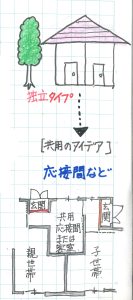 独立タイプ
[共用のアイデア]
応接間など
玄関
玄関
共用
応接間
または
客室
親世帯
子世帯